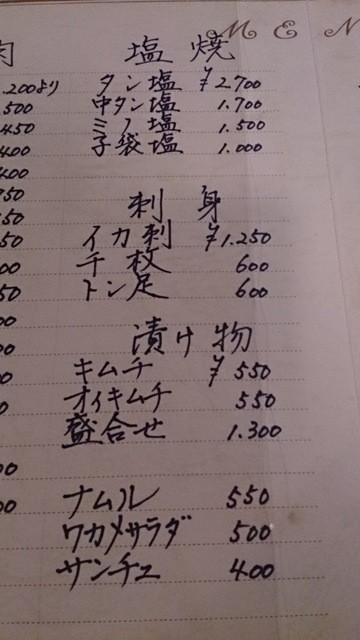 MEN
肉
塩焼
.200より
タン塩 ¥2.700
500
中タン塩 1.700
450
ミノ塩 1.500
400
子袋塩 1.000
400
刺身
イカ刺 ¥1.250
千枚 600
トン足 600
漬け物
キムチ ¥550
オイキムチ 550
盛合せ 1.300
ナムル 550
ワカメサラダ 500
サンチュ 400